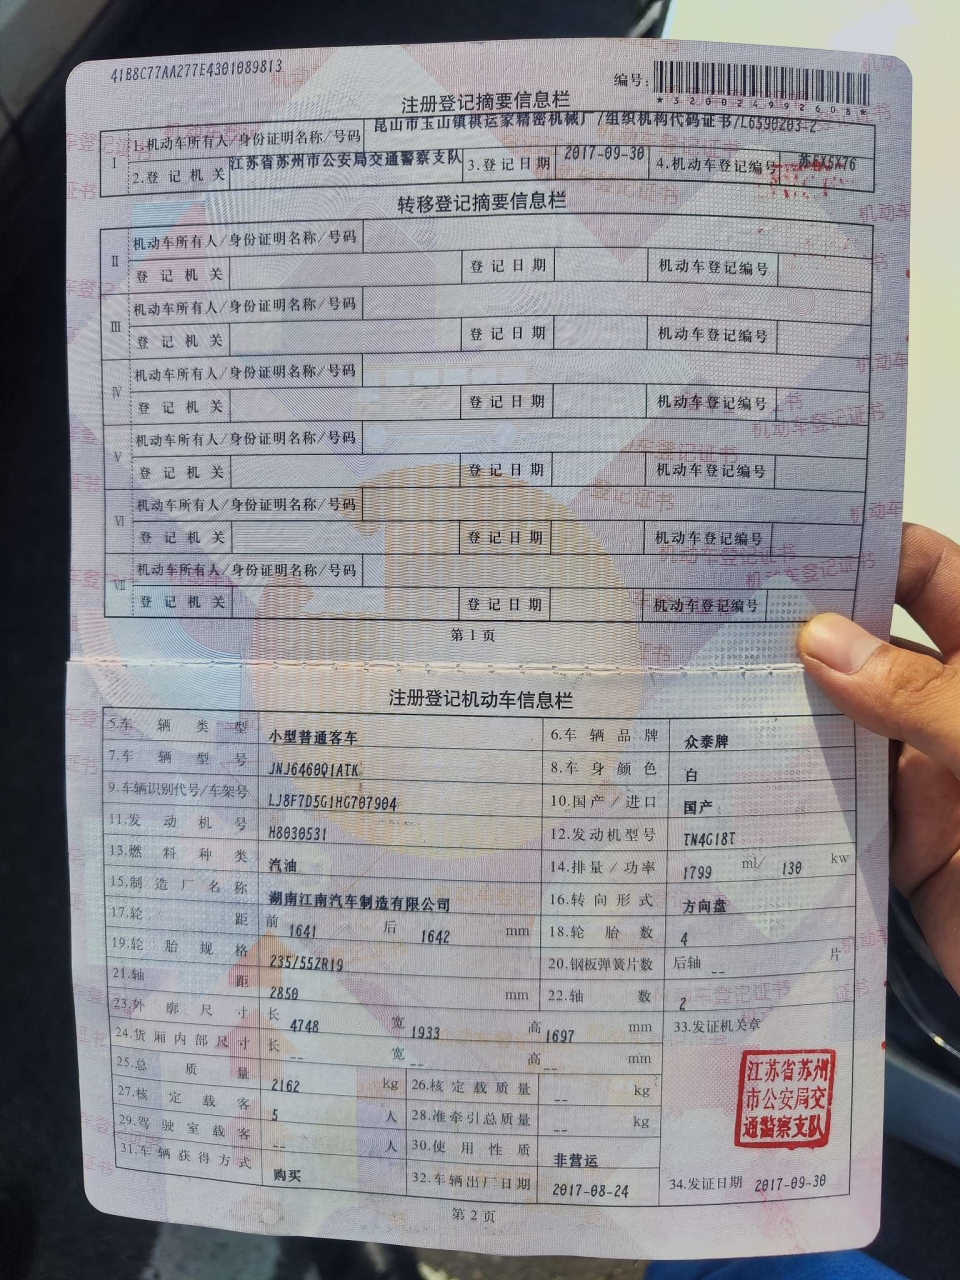 41B8C77AA277E4301089813
编号:
*320024992608*
注册登记摘要信息栏
I 1.机动车所有人/身份证明名称/号码 昆山市玉山镇祺运家精密机械厂/组织机构代码证书/L6590203-2
2.登记机关 江苏省苏州市公安局交通警察支队 3.登记日期 2017-09-30 4.机动车登记编号 苏6X5X76
转移登记摘要信息栏
II 机动车所有人/身份证明名称/号码
登记机关 登记日期 机动车登记编号
III 机动车所有人/身份证明名称/号码
登记机关 登记日期 机动车登记编号
IV 机动车所有人/身份证明名称/号码
登记机关 登记日期 机动车登记编号
V 机动车所有人/身份证明名称/号码
登记机关 登记日期 机动车登记编号
VI 机动车所有人/身份证明名称/号码
登记机关 登记日期 机动车登记编号
VII 机动车所有人/身份证明名称/号码
登记机关 登记日期 机动车登记编号
第1页
注册登记机动车信息栏
5.车辆类型 小型普通客车 6.车辆品牌 众泰牌
7.车辆型号 JNJ6460Q1ATK 8.车身颜色 白
9.车辆识别代号/车架号 LJ8F7D5G1HG707904 10.国产/进口 国产
11.发动机号 H8030531 12.发动机型号 TN4G18T
13.燃料种类 汽油 14.排量/功率 1799 ml/ 130 kw
15.制造厂名称 湖南江南汽车制造有限公司 16.转向形式 方向盘
17.轮距 前 1641 后 1642 mm 18.轮胎数 4
19.轮胎规格 235/55ZR19 20.钢板弹簧片数 后轴 -- 片
21.轴距 2850 mm 22.轴数 2
23.外廓尺寸 长 4748 宽 1933 高 1697 mm 33.发证机关章
24.货厢内部尺寸 长 -- 宽 -- 高 -- mm
25.总质量 2162 kg 26.核定载质量 -- kg
27.核定载客 5 人 28.准牵引总质量 -- kg
29.驾驶室载客 -- 人 30.使用性质 非营运
31.车辆获得方式 购买 32.车辆出厂日期 2017-08-24 34.发证日期 2017-09-30
江苏省苏州
市公安局交
通警察支队
第2页